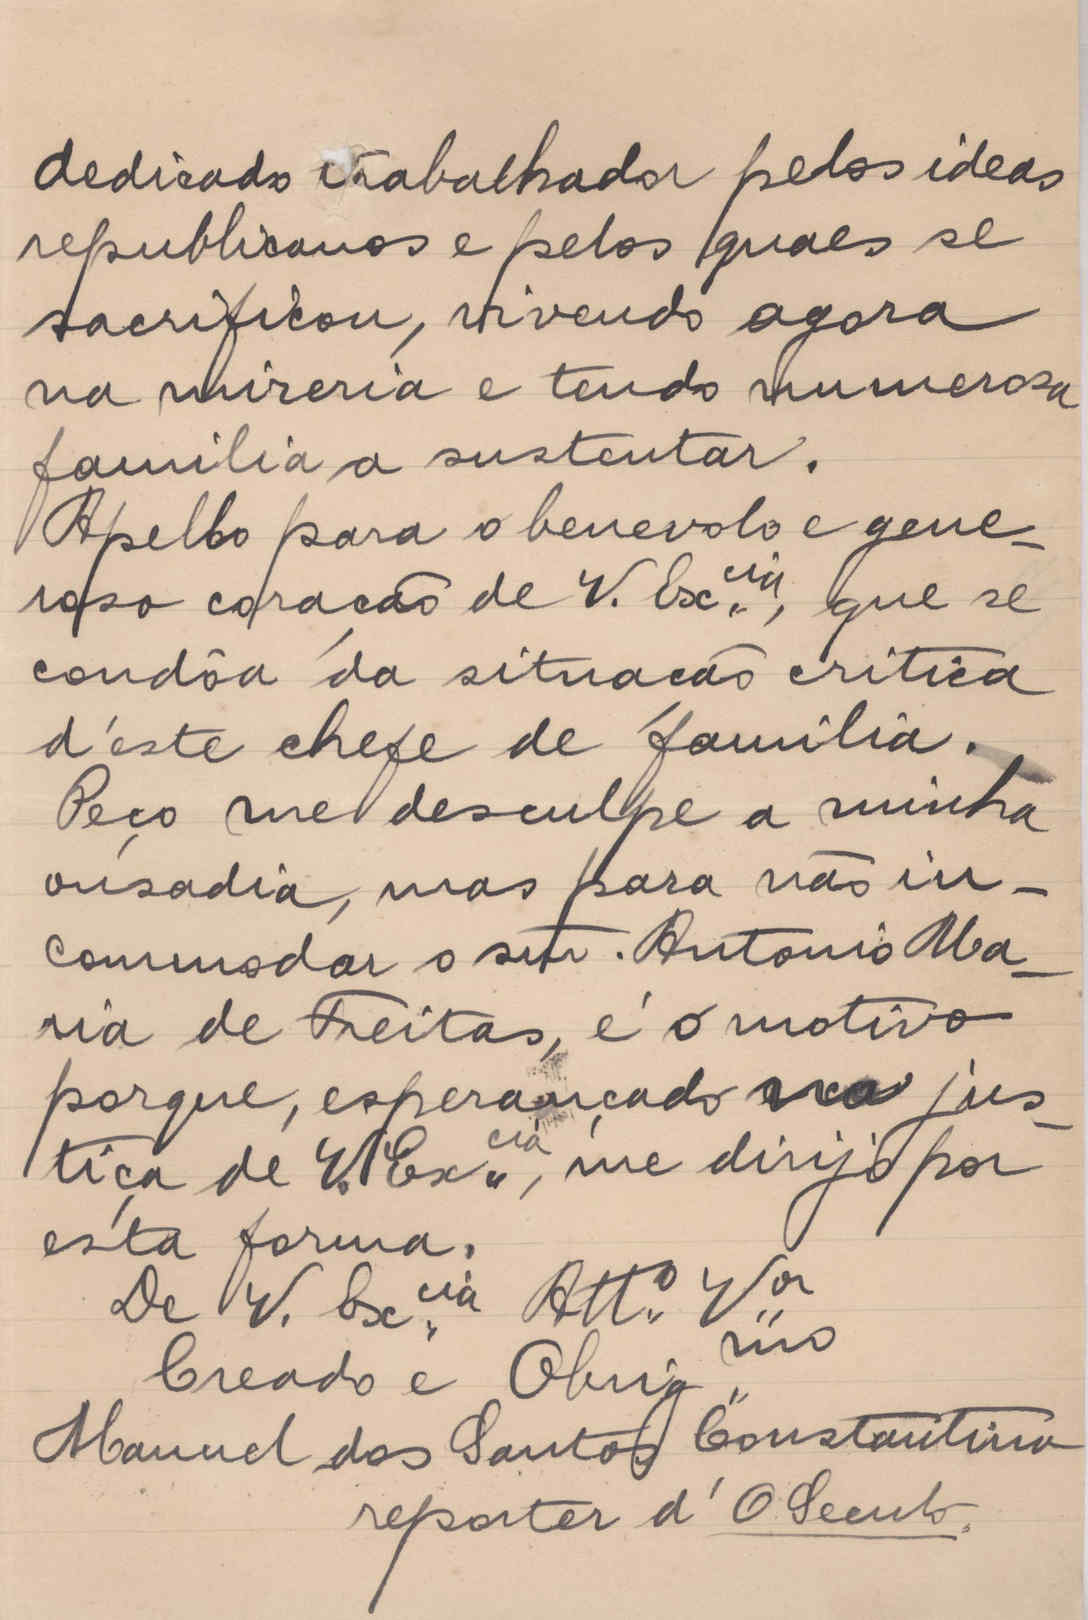 dedicado trabalhador pelos ideas
republicanos e pelos quaes se
sacrificou, vivendo agora
na mizeria e tendo numerosa
familia a sustentar.
Apello para o benevolo e gene-
roso coração de V. Ex.cia, que se
condôa da situação critica
d'este chefe de familia.
Peço me desculpe a minha
ousadia, mas para não in-
commodar o snr. Antonio Ma-
ria de Freitas, é o motivo
porque, esperançado na jus-
tiça de V. Ex.cia, me dirijo por
esta forma.
De V. Ex.cia Att.o V.or
Creado e Obrig.mo
Manuel dos Santos Constantino
reporter d'O Seculo.